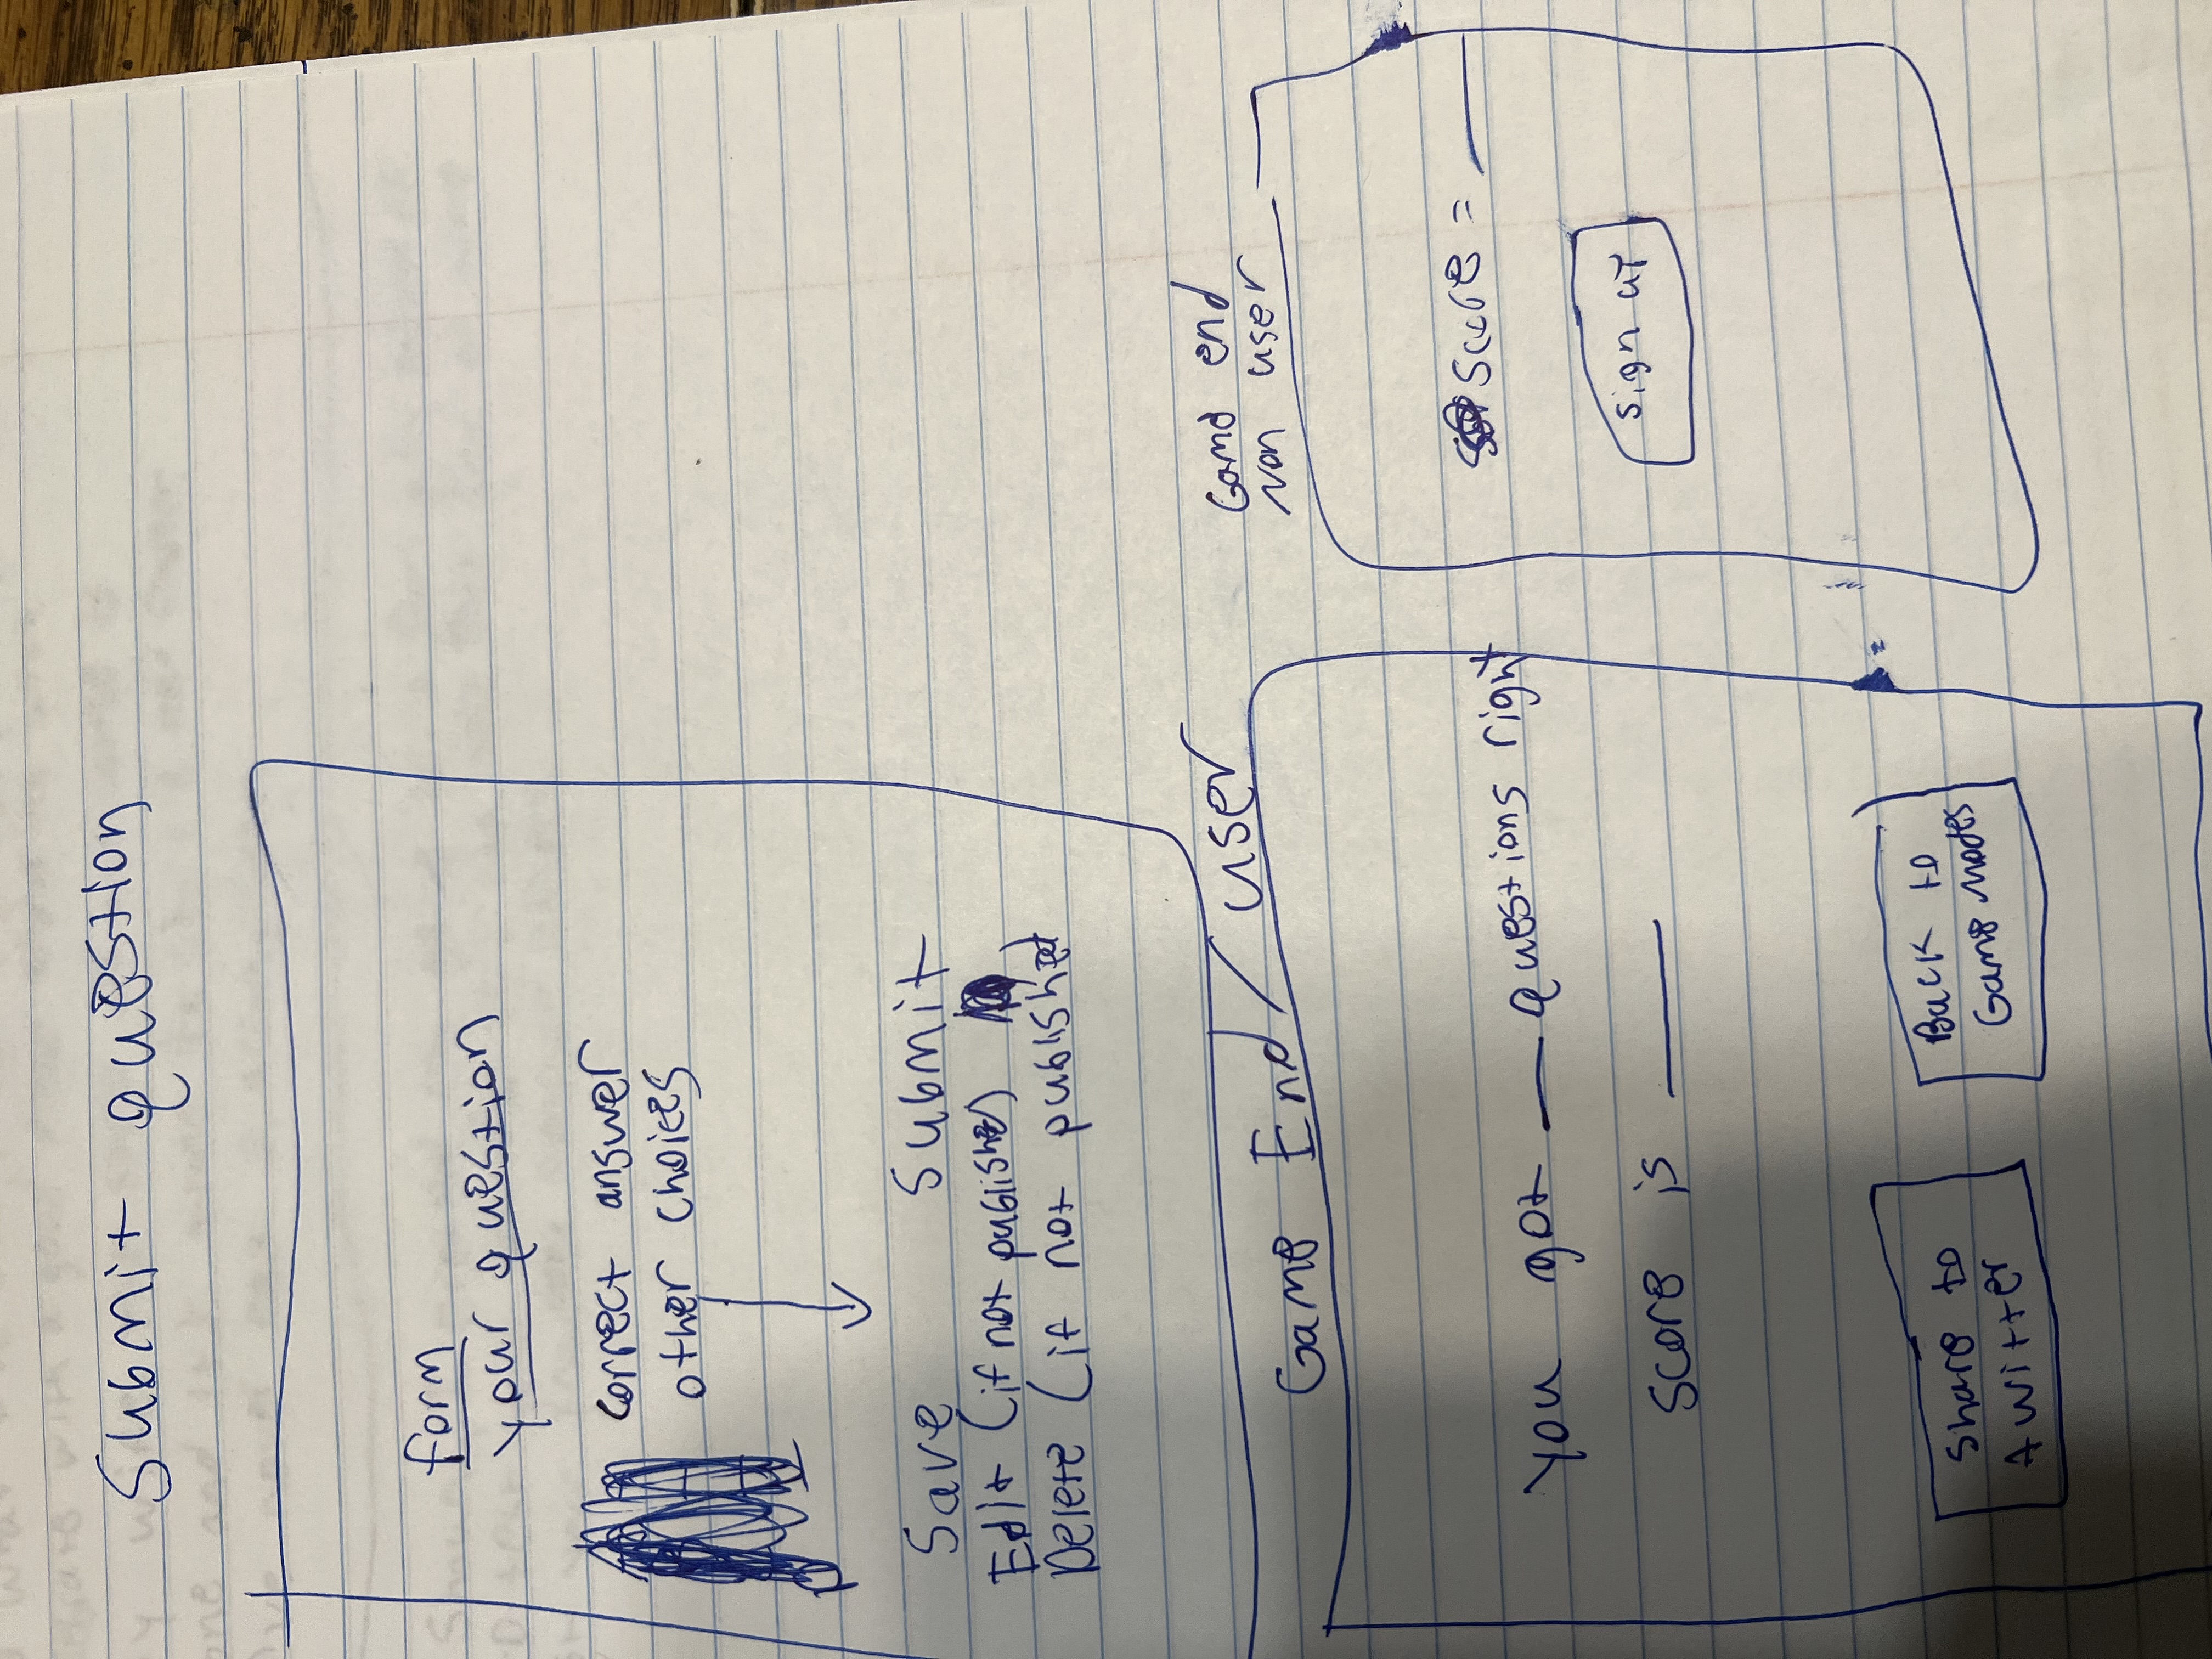 Submit question
form
your question
correct answer
other choices
Save Submit
Edit (if not published)
Delete (if not published)
Game End / user
You got __ questions right
score is ___
Share to
twitter
Back to
Game Modes
Game end
Non user
score = ___
sign up